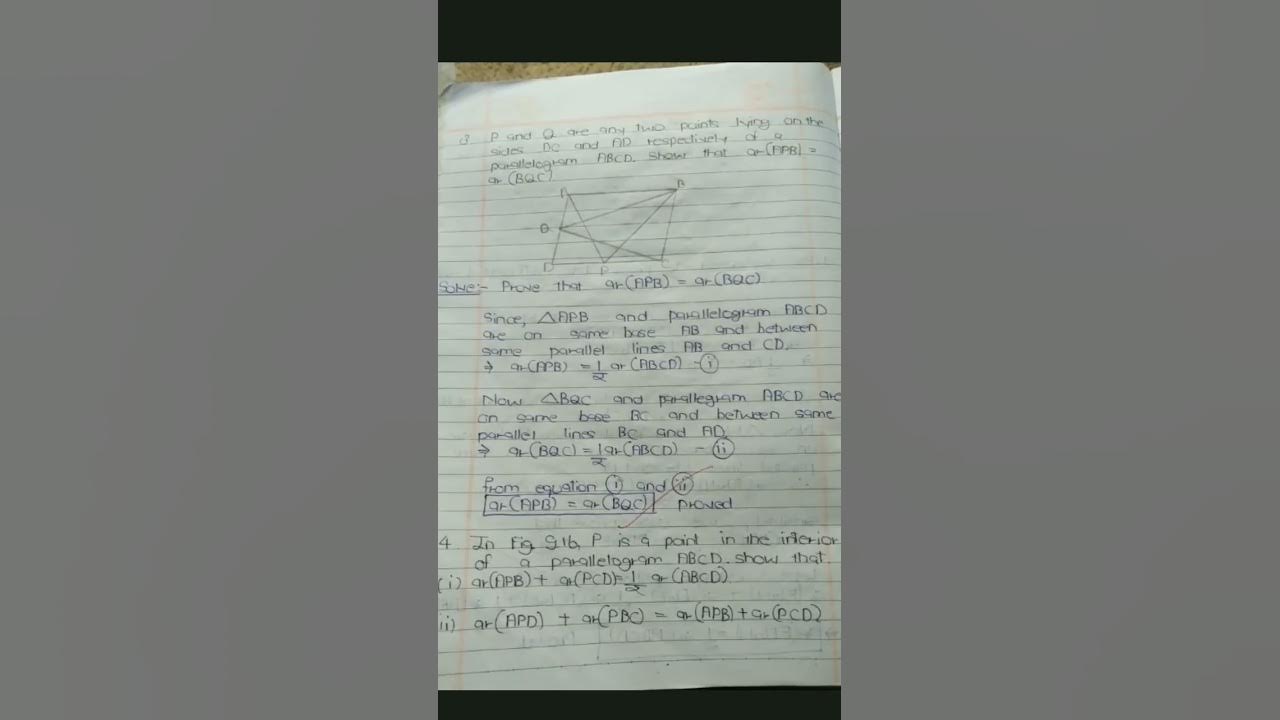 3 P and Q are any two points lying on the
sides DC and AD respectively of a
parallelogram ABCD. Show that ar(APB) =
ar(BQC)
A B
Q
D P C
Solve:- Prove that ar(APB) = ar(BQC)
Since, △APB and parallelogram ABCD
are on same base AB and between
same parallel lines AB and CD.
⇒ ar(APB) = 1/2 ar(ABCD) -(i)
Now △BQC and parallegram ABCD are
on same base BC and between same
parallel lines BC and AD
⇒ ar(BQC) = 1/2 ar(ABCD) -(ii)
from equation (i) and (ii)
ar(APB) = ar(BQC) proved
4 In Fig 9.16, P is a point in the interior
of a parallelogram ABCD. show that
(i) ar(APB) + ar(PCD) = 1/2 ar(ABCD)
ii) ar(APD) + ar(PBC) = ar(APB) + ar(PCD)